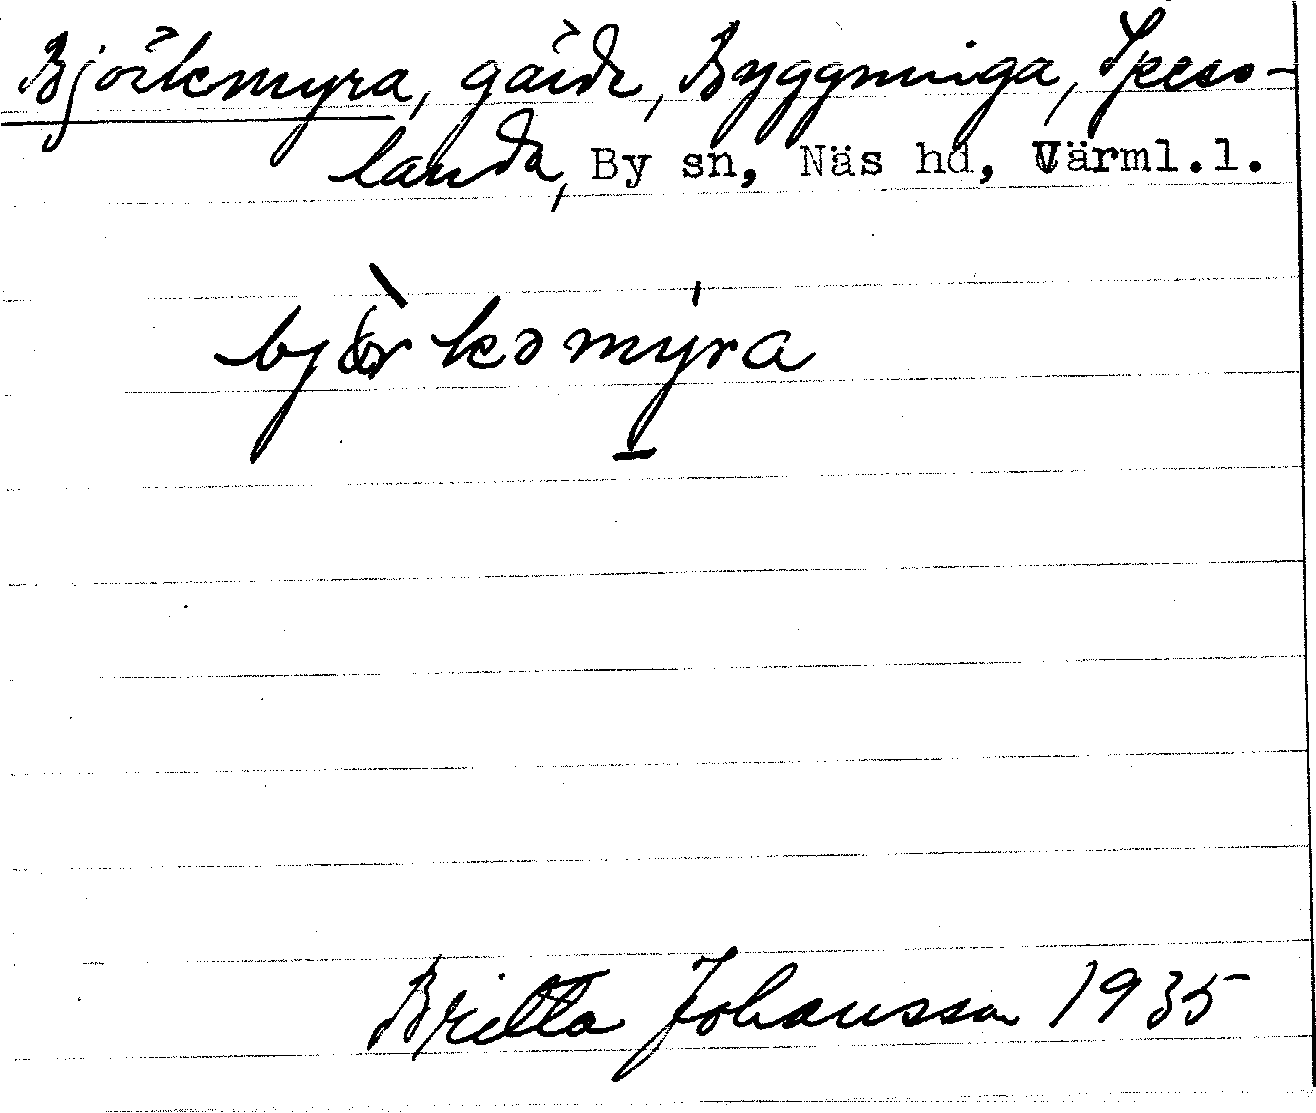 Björkmyra, gård, Byggninga, Speso-
landa, By sn, Näs hd, Värml.l.
bjòrkəmýra
Britta Johansson 1935